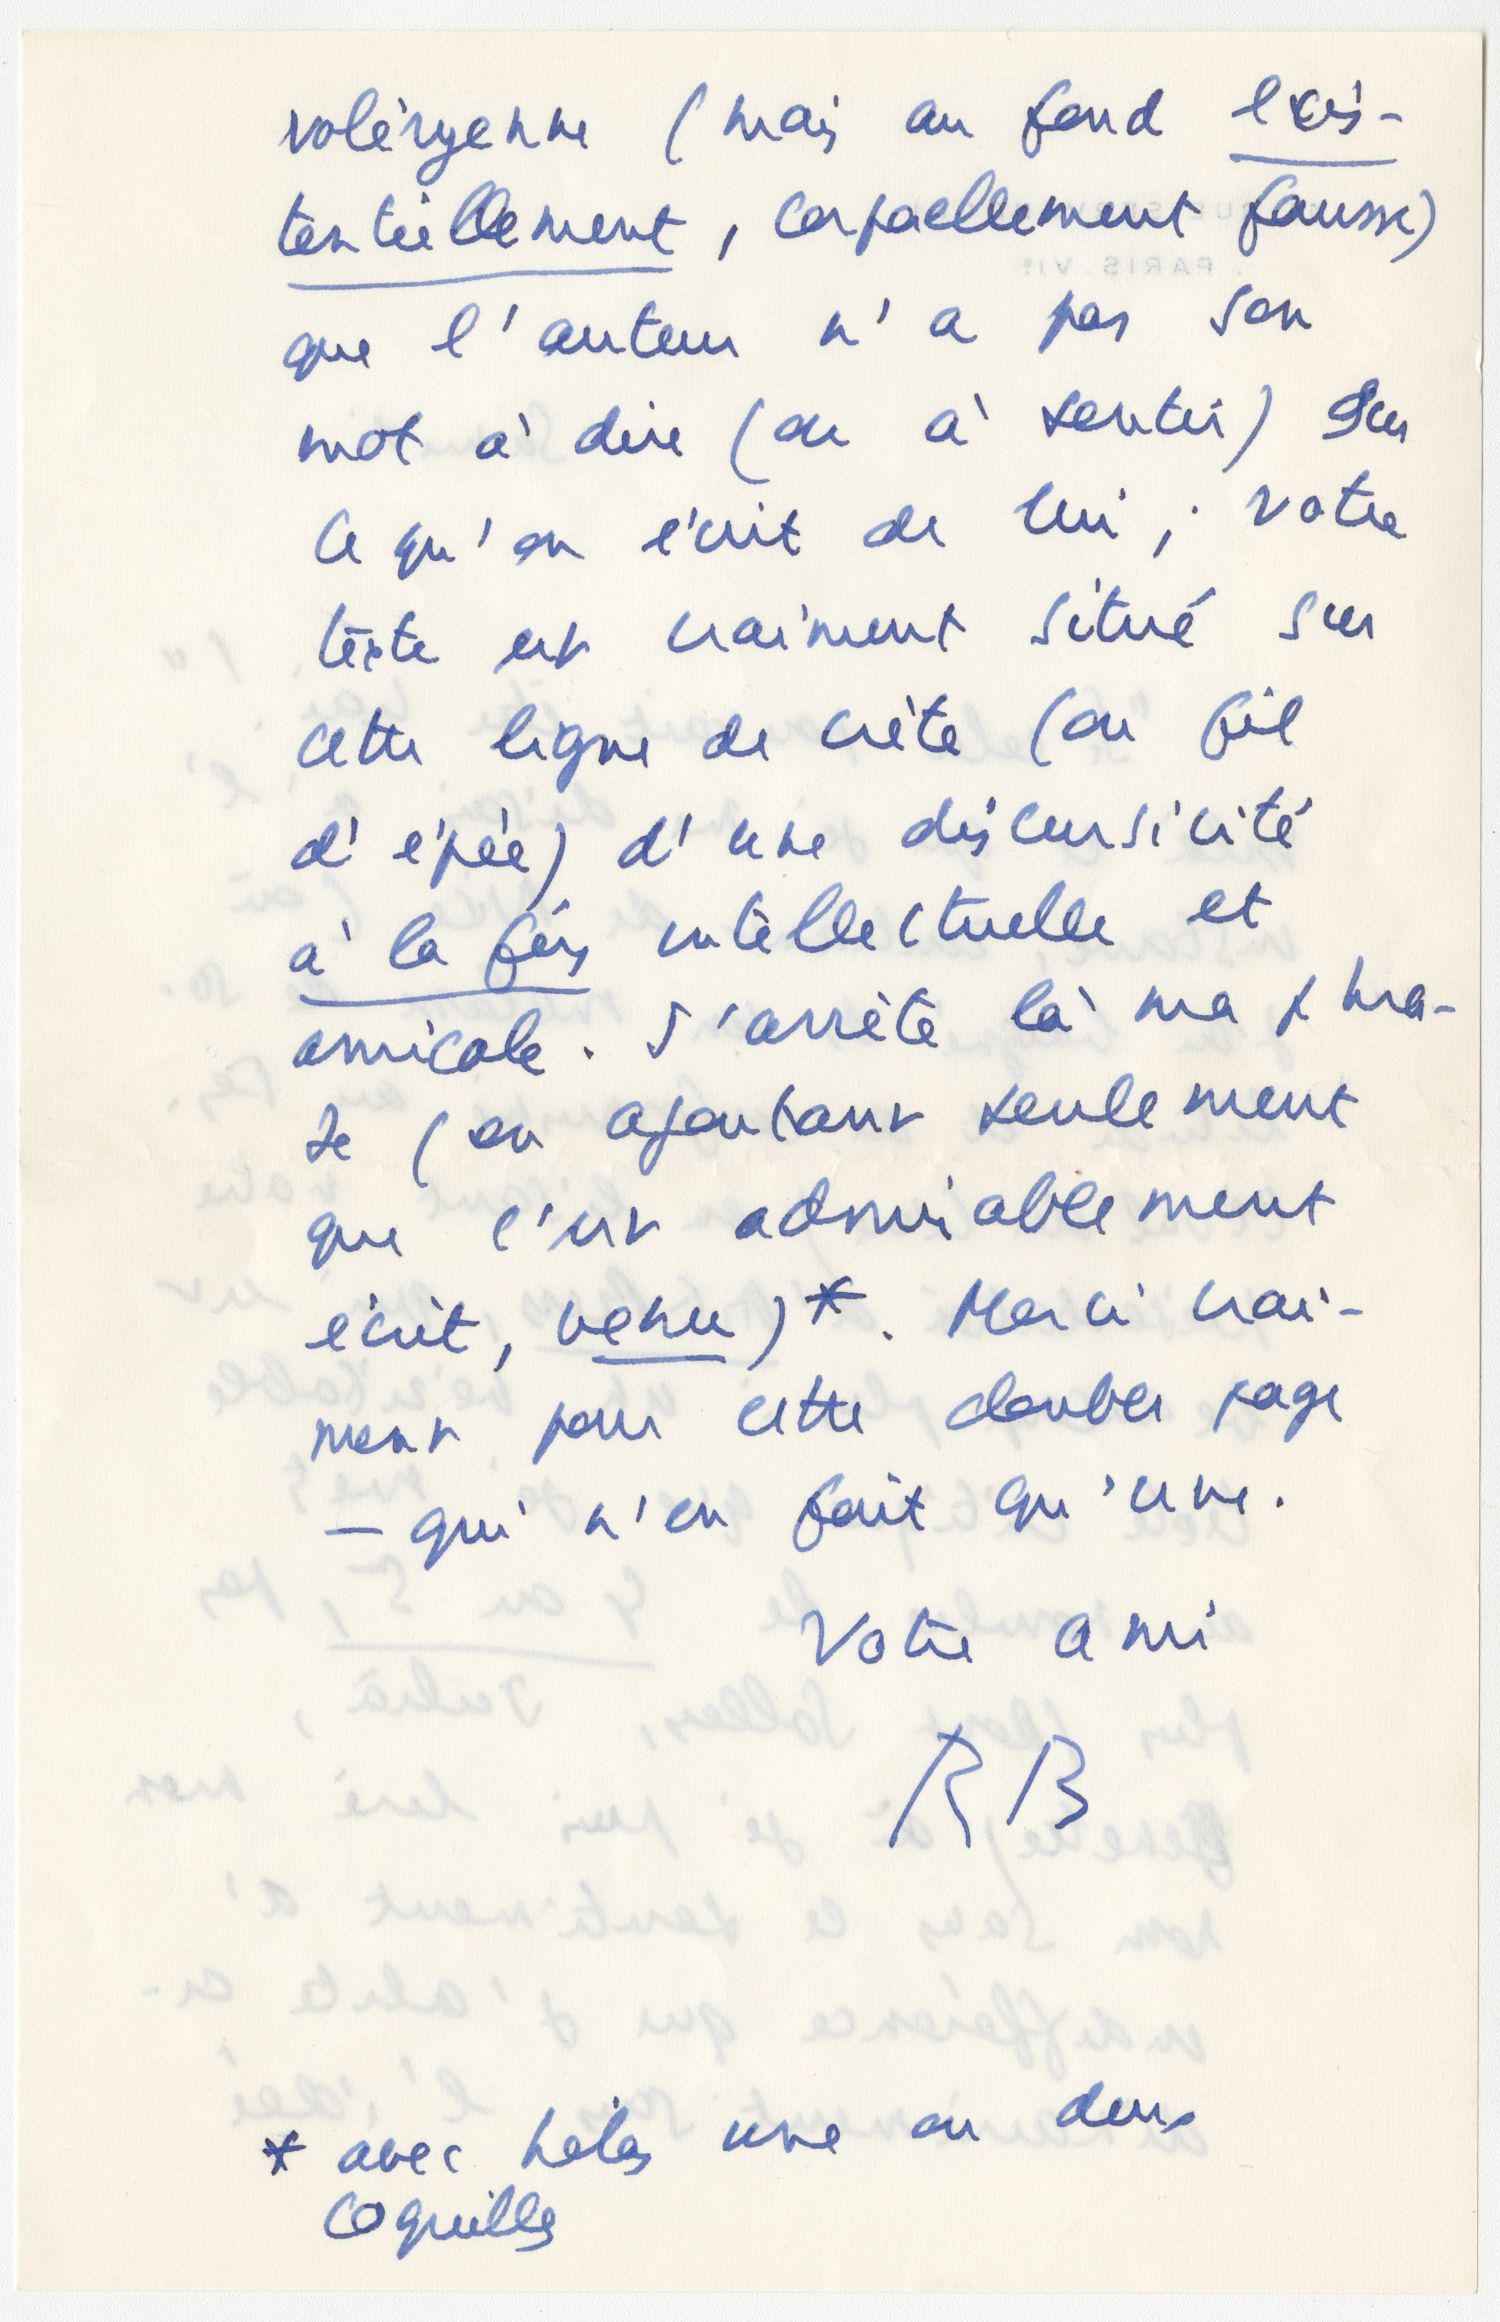 valéryenne (mais au fond exis-
tentiellement, corporellement fausse)
que l'auteur n'a pas son
mot à dire (ou à sentir) sur
ce qu'on écrit de lui ; votre
texte est vraiment situé sur
cette ligne de crête (ou fil
d'épée) d'une discursivité
à la fois intellectuelle et
amicale. J'arrête là ma phra-
se (en ajoutant seulement
que c'est admirablement
écrit, venu)*. Merci vrai-
ment pour cette double page
— qui n'en fait qu'une.
Votre ami
RB
* avec hélas une ou deux
coquilles